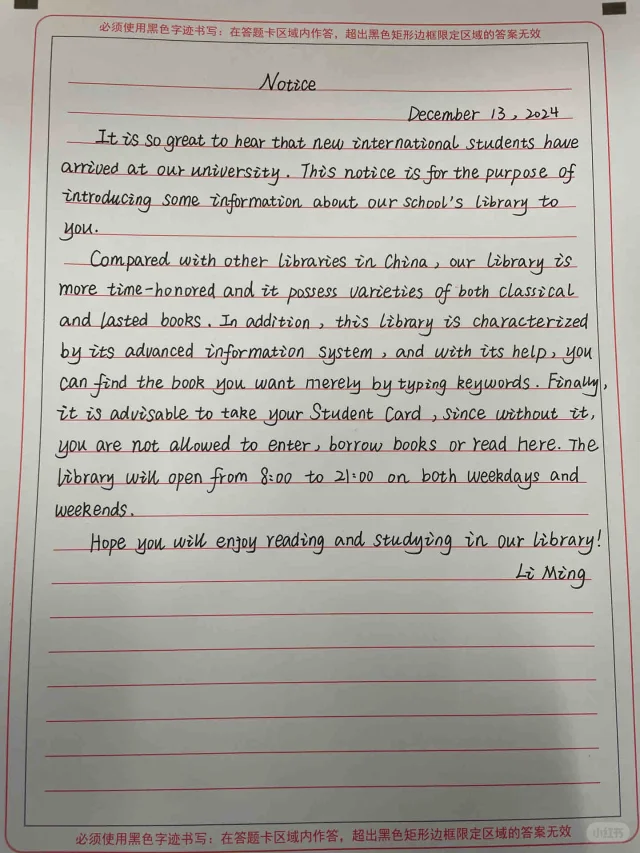 必须使用黑色字迹书写：在答题卡区域内作答，超出黑色矩形边框限定区域的答案无效
Notice
December 13, 2024
It is so great to hear that new international students have
arrived at our university. This notice is for the purpose of
introducing some information about our school's library to
you.
Compared with other libraries in China, our library is
more time-honored and it possess varieties of both classical
and lasted books. In addition, this library is characterized
by its advanced information system, and with its help, you
can find the book you want merely by typing keywords. Finally,
it is advisable to take your Student Card, since without it,
you are not allowed to enter, borrow books or read here. The
library will open from 8:00 to 21:00 on both weekdays and
weekends.
Hope you will enjoy reading and studying in our library!
Li Ming
必须使用黑色字迹书写：在答题卡区域内作答，超出黑色矩形边框限定区域的答案无效
小红书